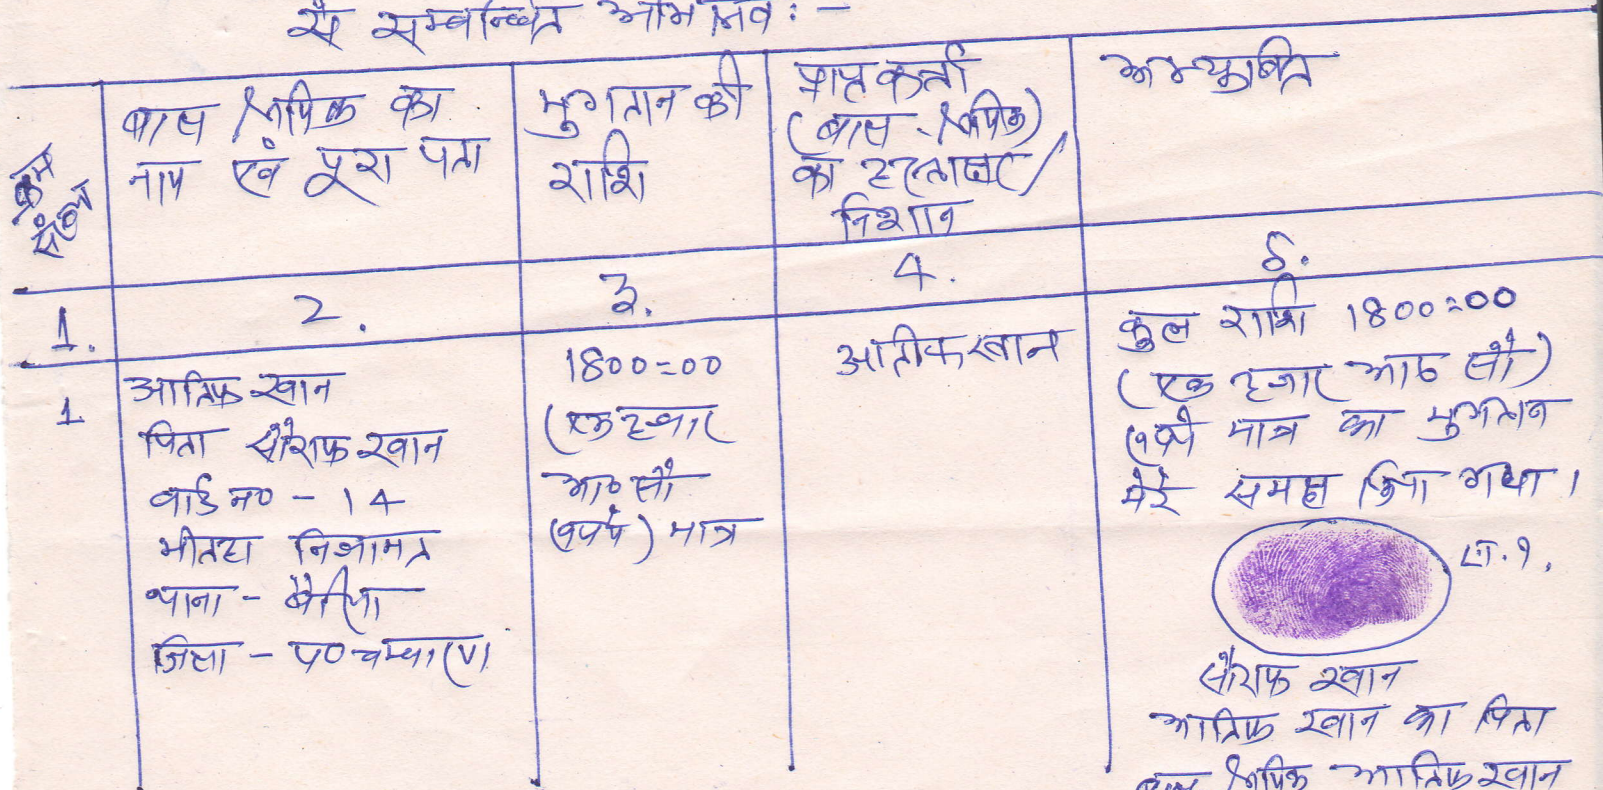 से सम्बन्धित अभिलेख : -
क्रम संख्या
बाल श्रमिक का
नाम एवं पूरा पता
भुगतान की
राशि
प्राप्त कर्ता
(बाल श्रमिक)
का हस्ताक्षर/
निशान
अभ्युक्ति
1.
2.
3.
4.
5.
1
आतिफ खान
पिता सौराफ खान
वार्ड न० - 14
भीतहा निआमत
थाना - बैरिया
जिला - प० चम्पारण
1800=00
(एक हजार
आठ सौ
रूपये) मात्र
आतीक खान
कुल राशि 1800=00
(एक हजार आठ सौ)
रूपये मात्र का भुगतान
मेरे समक्ष किया गया।
सौराफ खान
आतिफ खान का पिता
बाल श्रमिक आतिफ खान